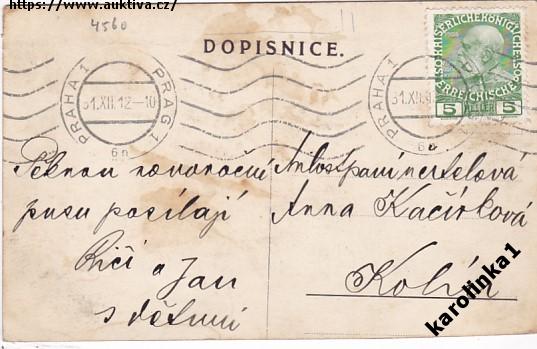 https://www.auktiva.cz/
4560
DOPISNICE.
KAISERLICHE KÖNIGLICHE ÖSTERREICHISCHE
5 HELLER 5
PRAHA 1 PRAG 1
31.XII.12-10
6a
PRAHA 1
31.XII.
6a
Peknou novoroční
pusu posílají
a Jan
s dětmi
paní
Anna Kačírková
Kolín
karolinka1